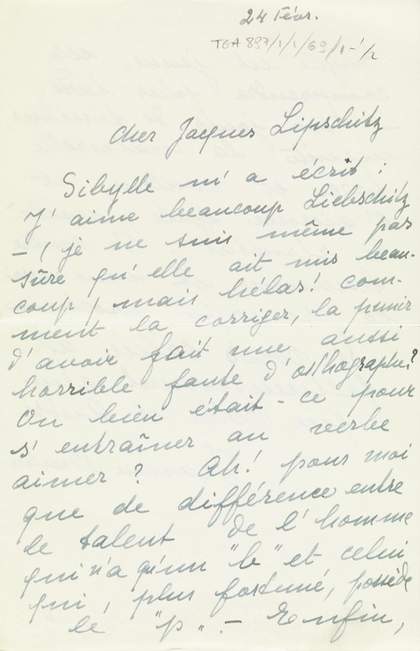 24 Févr.
TGA 897/1/1/69/1-1/2
Cher Jacques Lipschitz
Sibylle m'a écrit :
J'aime beaucoup Liebschitz
- (je ne suis même pas
sûre qu'elle ait mis beau-
coup) mais hélas! com-
ment la corriger, la punir
d'avoir fait une aussi
horrible faute d'orthographe?
Ou bien était-ce pour
s'entraîner au verbe
aimer? Ah! pour moi
que de différence entre
le talent de l'homme
qui n'a qu'un "b" et celui
qui, plus fortuné, possède
le "p". - Enfin,